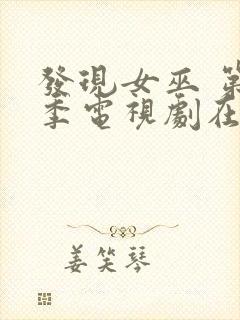 發現女巫 第
季電視劇在
姜笑琴